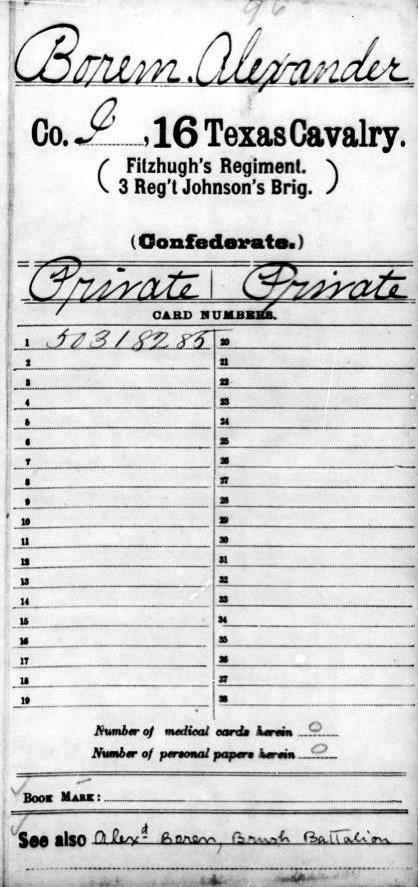 96
Borem. Alexander
Co. I, 16 Texas Cavalry.
(Fitzhugh's Regiment.
3 Reg't Johnson's Brig.)
(Confederate.)
Private | Private
CARD NUMBERS.
1 50318285 20
2 21
3 22
4 23
5 24
6 25
7 26
8 27
9 28
10 29
11 30
12 31
13 32
14 33
15 34
16 35
17 36
18 37
19 38
Number of medical cards herein 0
Number of personal papers herein 0
BOOK MARK:
See also Alexd Boren, Brush Battalion